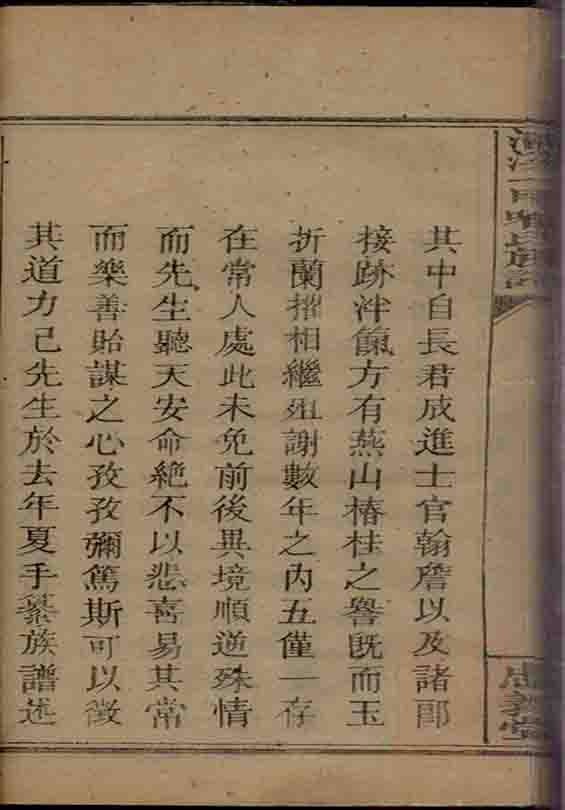 其中自長君成進士官翰詹以及諸郎
接跡泮餼方有燕山椿桂之譽既而玉
折蘭摧相繼殂謝數年之內五僅一存
在常人處此未免前後異境順逆殊情
而先生聽天安命絕不以悲喜易其常
而樂善貽謀之心孜孜彌篤斯可以徵
其道力已先生於去年夏手纂族譜述
氏族譜
忠義堂